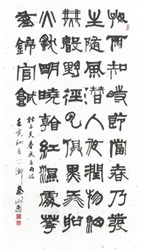 好雨知時節當春乃發
生隨風潛入夜潤物細
無聲野徑雲俱黑江船
火獨明曉看紅濕處花
重錦官城
杜子美春夜喜雨詩
壬寅秋月